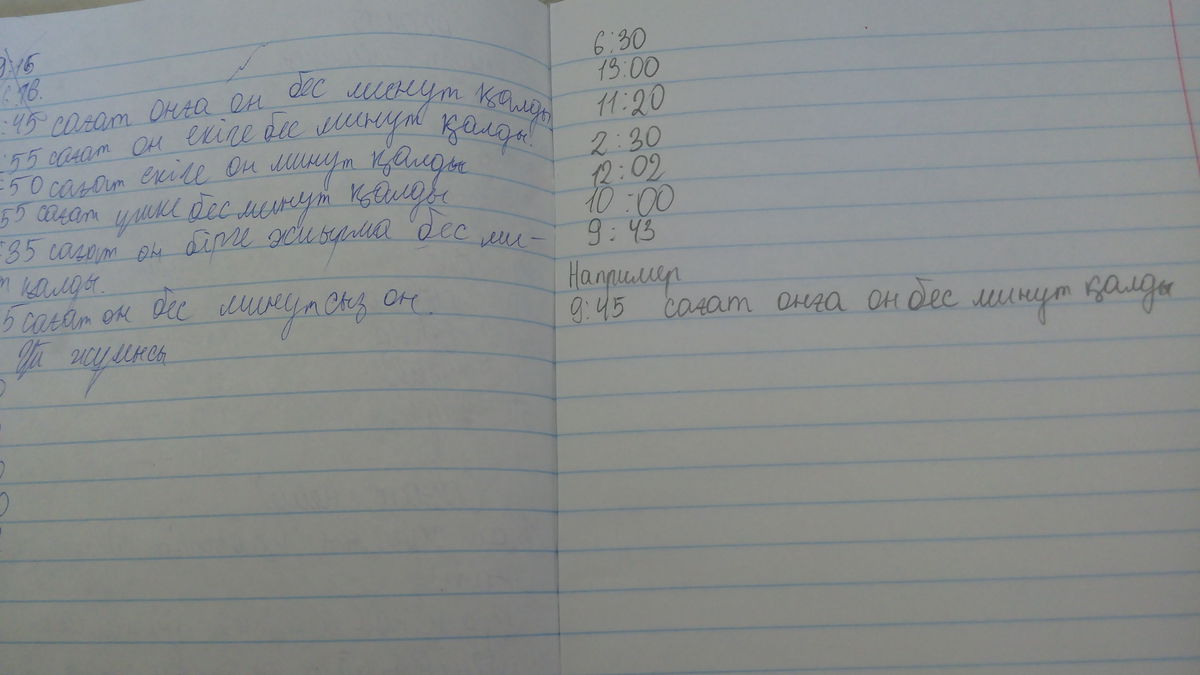 9:15
:45 сағат онға он бес минут қалды
:55 сағат он екіге бес минут қалды.
:50 сағат екіге он минут қалды
55 сағат үшке бес минут қалды
:35 сағат он бірге жиырма бес ми-
т қалды.
5 сағат он бес минутсыз он.
Үй жұмысы
6:30
13:00
11:20
2:30
12:02
10:00
9:43
Например
9:45 сағат онға он бес минут қалды